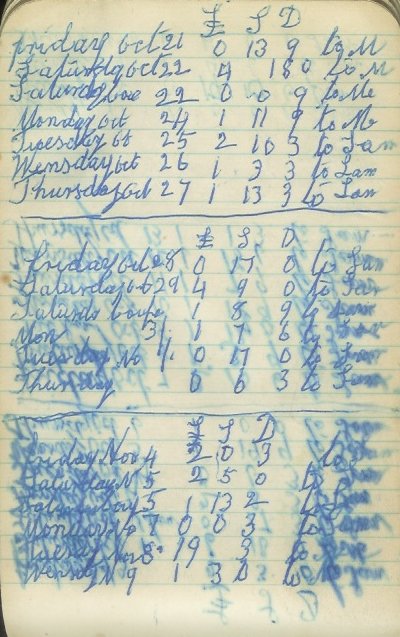 £ S D
friday oct 21 0 13 9 to M
Saturday oct 22 4 18 0 to M
Saturday 22 0 0 9 to Me
Monday oct 24 1 11 9 to Me
Tuesday ot 25 2 10 3 to Sam
Wensday oct 26 1 3 3 to Sam
Thursday oct 27 1 13 3 to Sam
£ S D
friday oct 28 0 17 0 to Sam
Saturday oct 29 4 9 0 to Sam
Saturd 1 8 9
Mon 31 1 7 6 to
Tuesday No 1 0 17 0 to Sam
Thursday 0 6 3 to Sam
£ S D
friday Nov 4 2 0 3 to
Saturday N 5 2 5 0 to
Saturday 5 1 13 2 to
Monday No 7 0 0 3 to
Tuesday Nov 8 19 3 to
Wensdy N 9 1 3 0 to